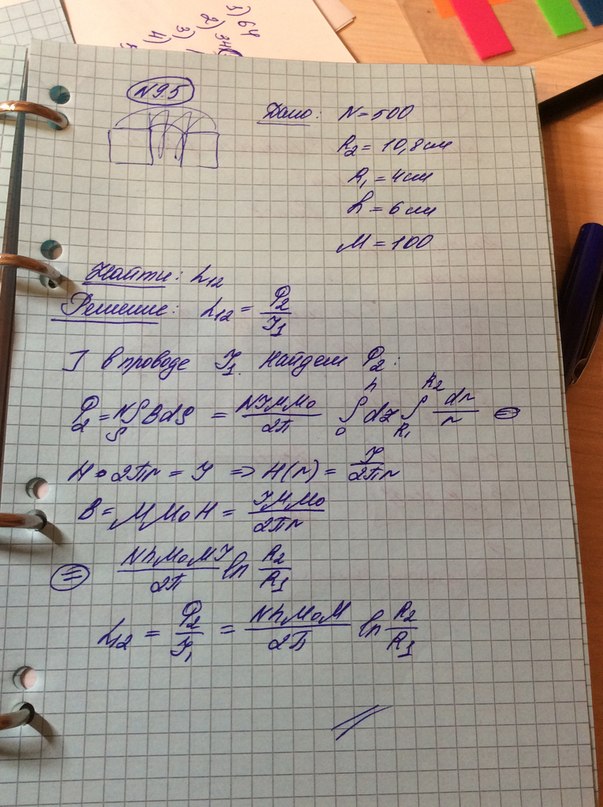 1) 64
2) 34
3)
4)
N95
Дано: N=500
R₂=10,8см
R₁=4см
h=6см
M=100
Найти: L₁₂
Решение: L₁₂ = Φ₂/I₁
] в проводе I₁. Найдем Φ₂:
Φ₂ = N∫_S BdS = NIMM₀/2π ∫₀^h dz ∫_{R₁}^{R₂} dr/r ⊜
H·2πr = I => H(r) = I/2πr
B = MM₀H = IMM₀/2πr
⊜ NhM₀MI/2π ln R₂/R₁
L₁₂ = Φ₂/I₁ = NhM₀M/2π ln R₂/R₁